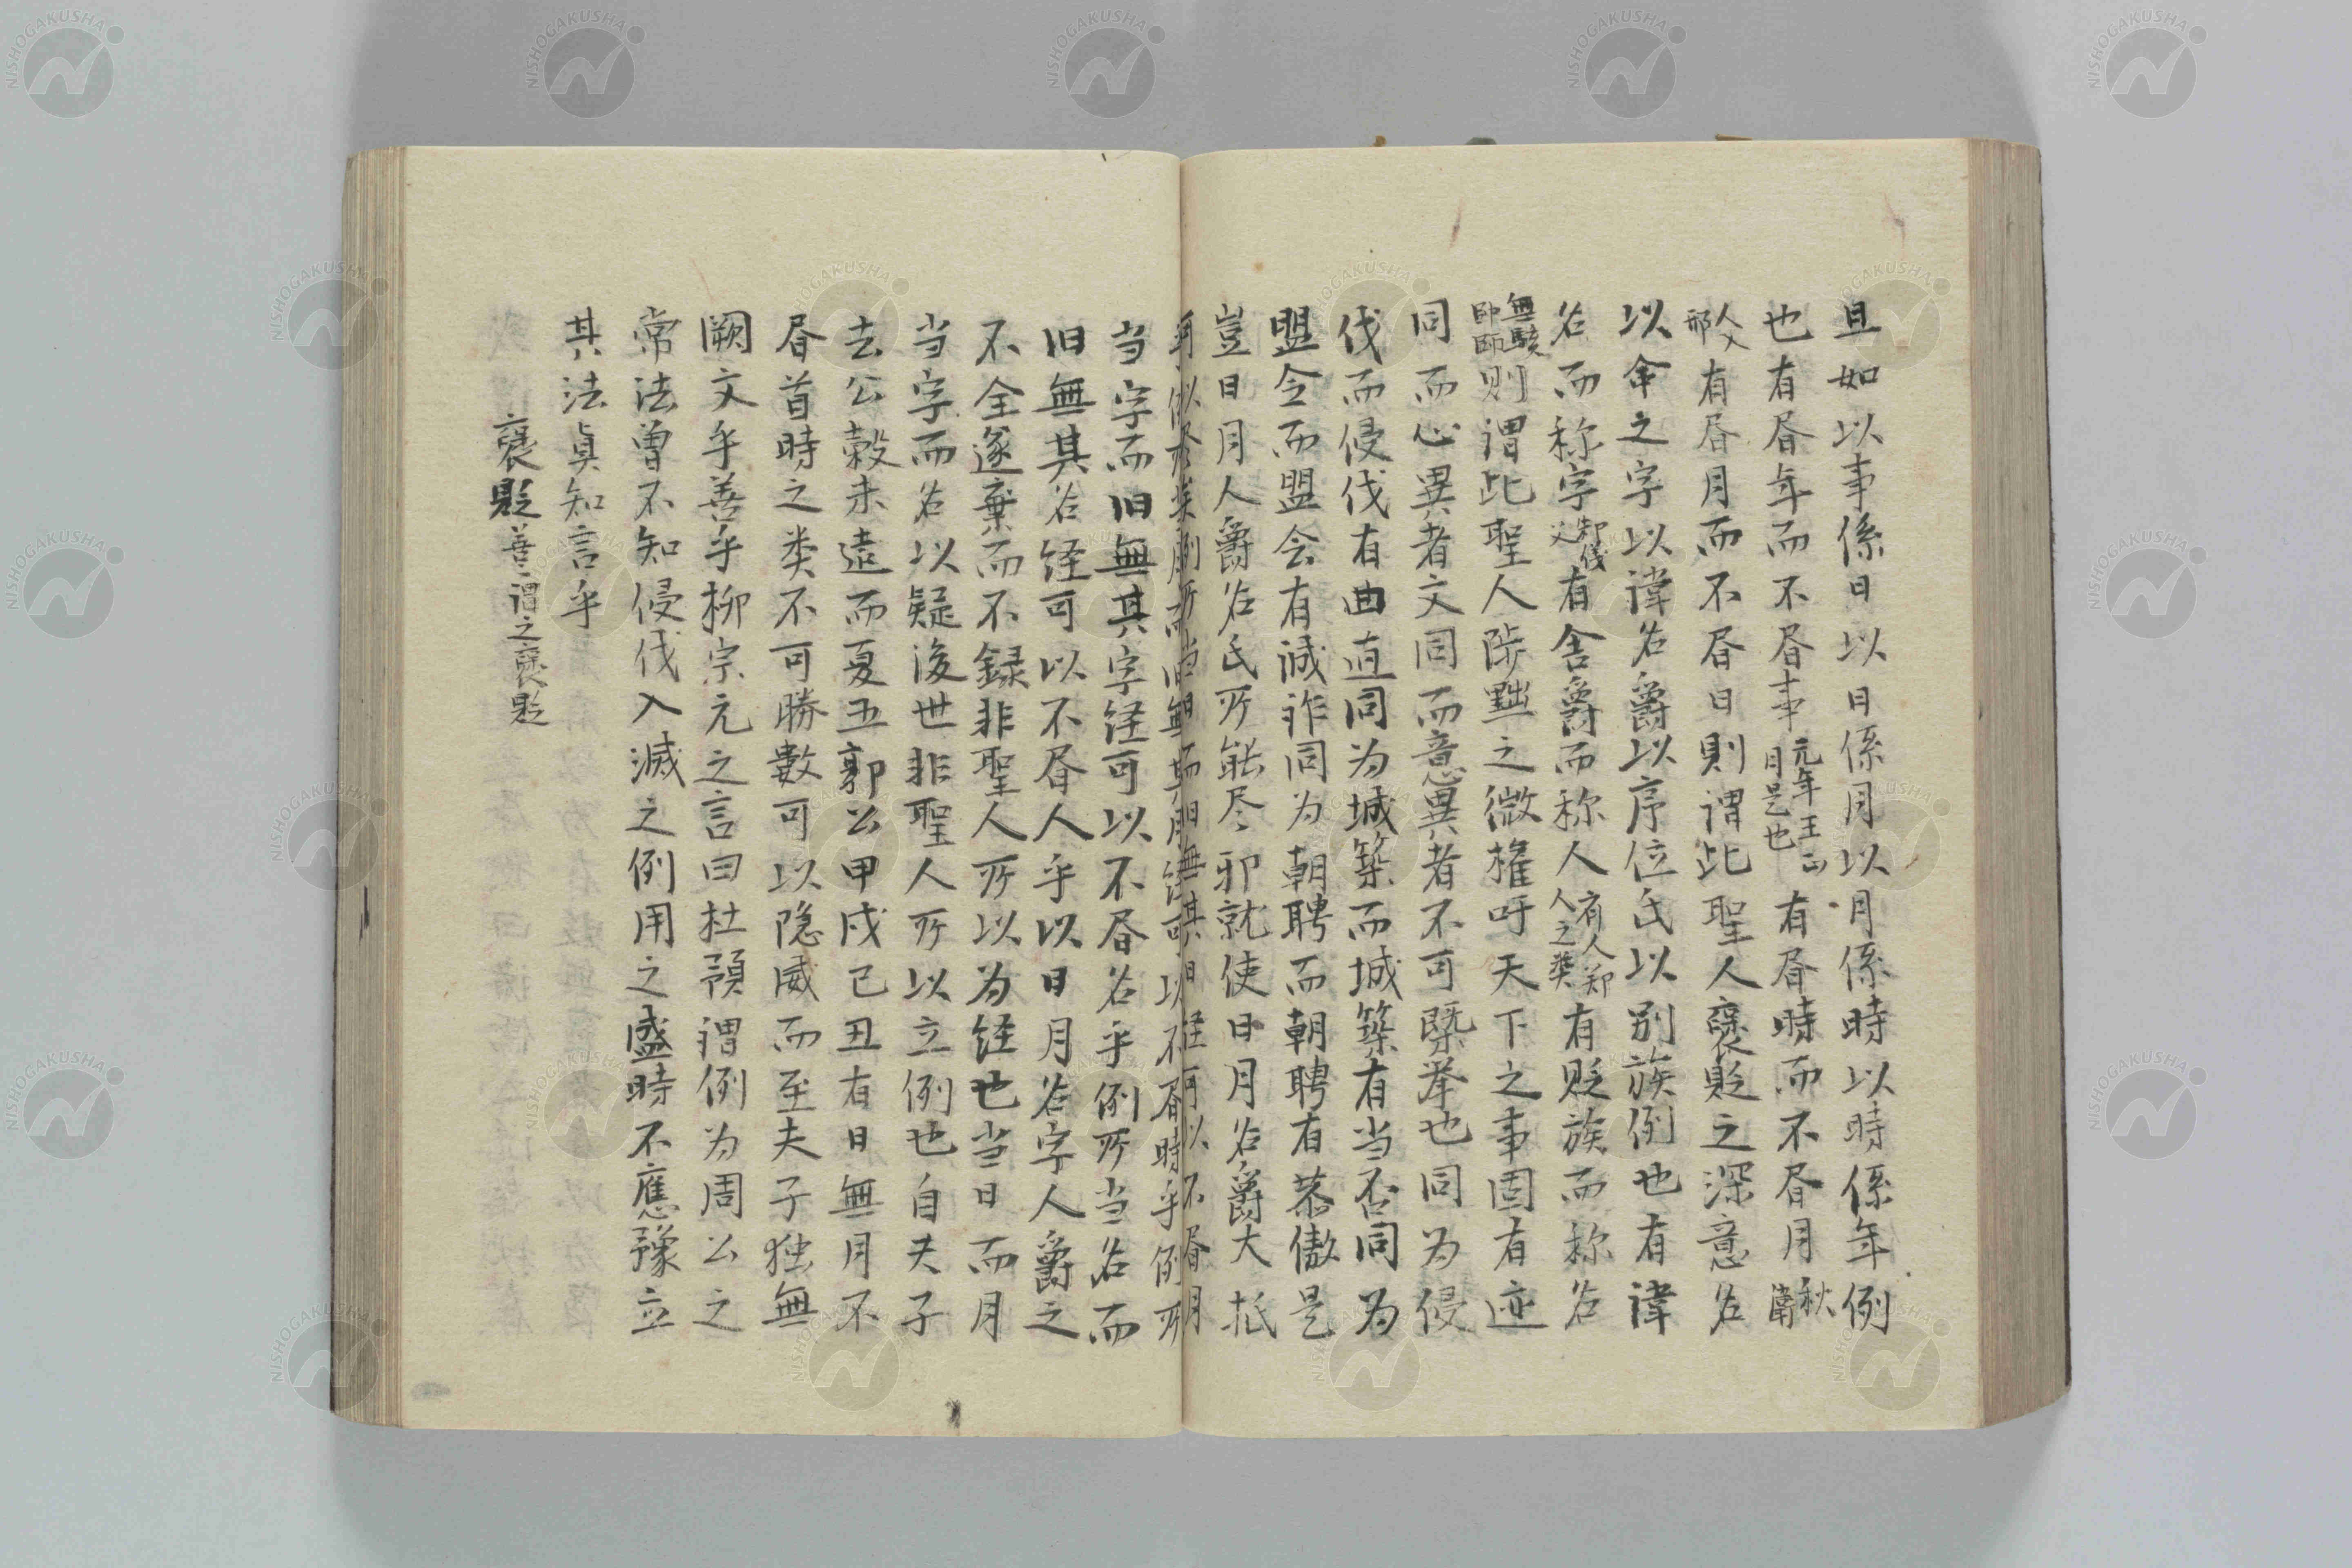 且如以事係日以日係月以月係時以時係年例
也有昏年而不昏事元年王正月是也有昏時而不昏月秋衛
人入邢有昏月而不昏日則谓此聖人褒貶之深意名
以命之字以諱名爵以序位氏以别族例也有諱
名而称字邾儀父有舍爵而称人有人郑人之类有貶族而称名
無駭帥師則谓此聖人陟黜之微権吁天下之事固有迹
同而心異者文同而意異者不可槩举也同为侵
伐而侵伐有曲直同为城築而城築有当否同为
盟会而盟会有誠詐同为朝聘而朝聘有恭傲是
豈日月人爵名氏所能尽邪就使日月名爵大抵
当字而旧無其字経可以不昏名乎例所当名而
旧無其名経可以不昏人乎以日月名字人爵之
不全遂棄而不録非聖人所以为経也当日而月
当字而名以疑後世非聖人所以立例也自夫子
去公穀未遠而夏五郭公甲戌己丑有日無月不
昏首時之类不可勝數可以隐威而至夫子独無
闕文乎善乎柳宗元之言曰杜預谓例为周公之
常法曾不知侵伐入滅之例用之盛時不應豫立
其法真知言乎
褒貶善谓之褒貶
NISHOGAKUSHA